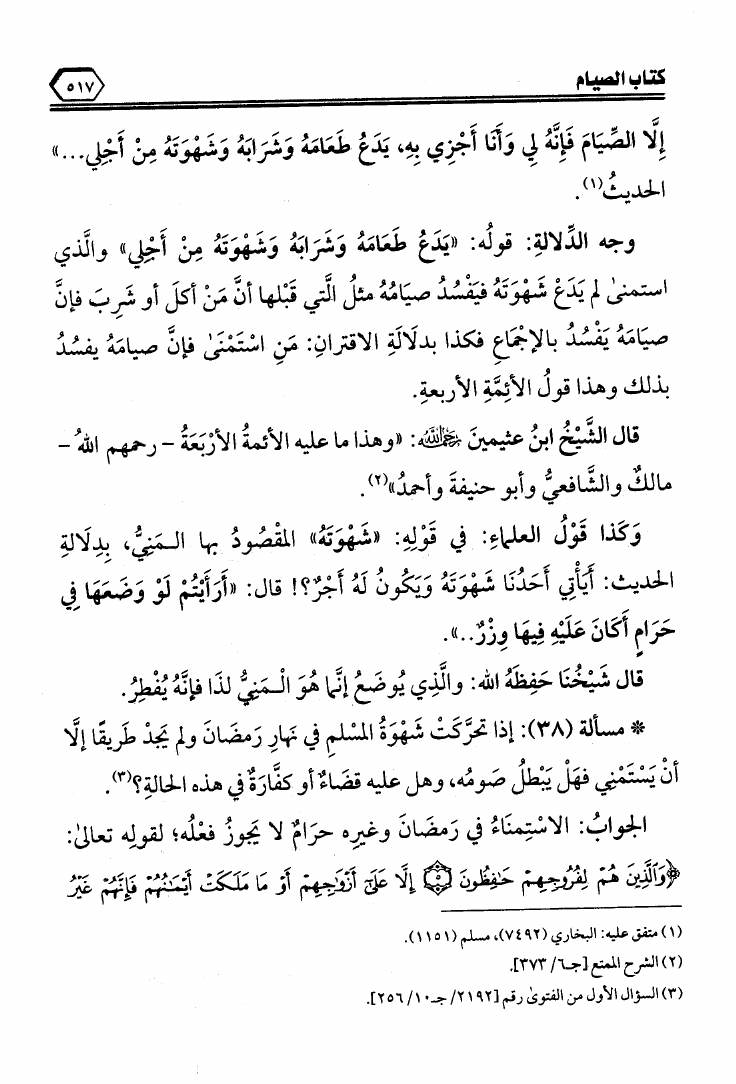 كتاب الصيام
٥١٧
إِلَّا الصِّيَامَ فَإِنَّهُ لِي وَأَنَا أَجْزِي بِهِ، يَدَعُ طَعَامَهُ وَشَرَابَهُ وَشَهْوَتَهُ مِنْ أَجْلِي...»
الحديثُ(١).
وجه الدِّلالةِ: قولُه: «يَدَعُ طَعَامَهُ وَشَرَابَهُ وَشَهْوَتَهُ مِنْ أَجْلِي» والَّذي
استمنىٰ لم يَدَعْ شَهْوَتَهُ فيَفْسُدُ صيامُهُ مثلُ الَّتي قَبْلها أنَّ مَنْ أكلَ أو شَرِبَ فإنَّ
صيامَهُ يَفْسُدُ بالإجْمَاعِ فكذا بدلَالَةِ الاقترانِ: مَنِ اسْتَمْنَىٰ فإنَّ صيامَهُ يفسُدُ
بذلك وهذا قولُ الأئِمَّةِ الأربعةِ.
قال الشَّيْخُ ابنُ عثيمينَ رَحِمَهُ اللَّهُ: «وهذا ما عليه الأئمةُ الأرْبَعَةُ – رحمهم اللهُ –
مالكٌ والشَّافعيُّ وأبو حنيفةَ وأحمدُ»(٢).
وَكَذا قَوْلُ العلماءِ: في قَوْلِهِ: «شَهْوَتَهُ» المَقْصُودُ بها الـمَنِيُّ، بِدِلَالةِ
الحديث: أَيَأْتِي أَحَدُنَا شَهْوَتَهُ وَيَكُونُ لَهُ أَجْرٌ؟! قال: «أَرَأَيْتُمْ لَوْ وَضَعَهَا فِي
حَرَامٍ أَكَانَ عَلَيْهِ فِيهَا وِزْرٌ..».
قال شَيْخُنَا حَفِظَهُ الله: والَّذِي يُوضَعُ إنَّما هُوَ الْـمَنِيُّ لذَا فإنَّهُ يُفْطِرُ.
* مسألة (٣٨): إذا تحرَّكَتْ شَهْوَةُ المسْلمِ في نهارِ رَمضَانَ ولم يَجدْ طَريقًا إلَّا
أنْ يَسْتَمْنِي فهَلْ يَبْطلُ صَومُه، وهل عليه قضَاءٌ أو كفَّارَةٌ في هذه الحالةِ؟(٣).
الجوابُ: الاسْتِمنَاءُ في رَمضَانَ وغيرِه حرَامٌ لا يَجوزُ فعْلُه؛ لقولِه تعالىٰ:
﴿وَٱلَّذِينَ هُمْ لِفُرُوجِهِمْ حَٰفِظُونَ ۝٥ إِلَّا عَلَىٰٓ أَزْوَٰجِهِمْ أَوْ مَا مَلَكَتْ أَيْمَٰنُهُمْ فَإِنَّهُمْ غَيْرُ
(١) متفق عليه: البخاري (٧٤٩٢)، مسلم (١١٥١).
(٢) الشرح الممتع [جـ٦/ ٣٧٣].
(٣) السؤال الأول من الفتوىٰ رقم [٢١٩٢/ جـ١٠/ ٢٥٦].